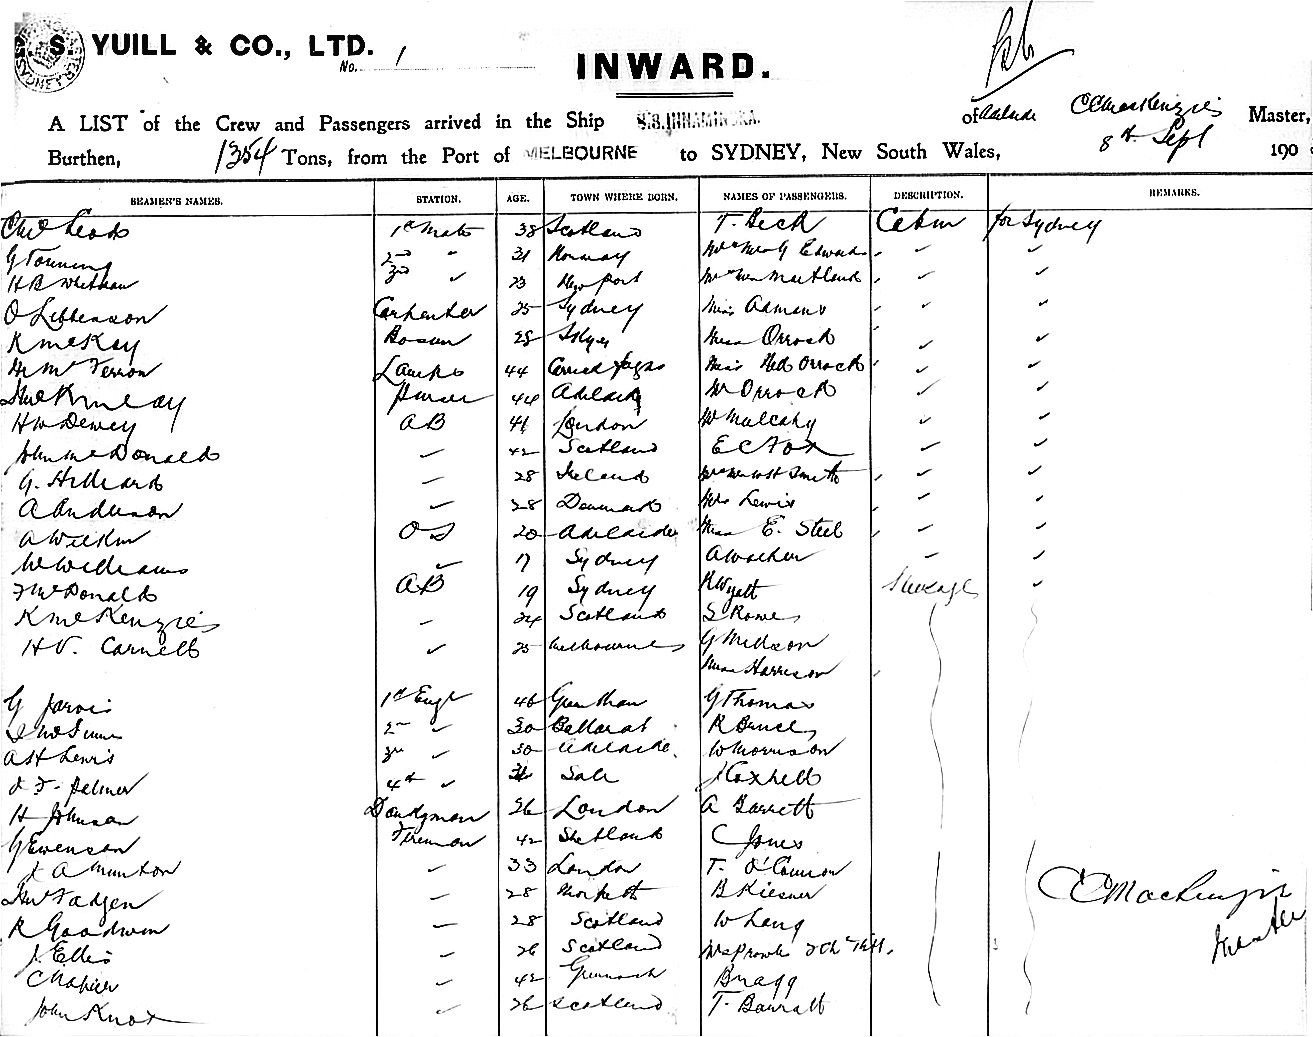 S. YUILL & CO., LTD.
No. 1
INWARD.
A LIST of the Crew and Passengers arrived in the Ship S.S. INNAMINCKA. of Adelaide CC MacKenzie Master,
Burthen, 1354 Tons, from the Port of MELBOURNE to SYDNEY, New South Wales, 8th Sept 190
SEAMEN'S NAMES. STATION. AGE. TOWN WHERE BORN. NAMES OF PASSENGERS. DESCRIPTION. REMARKS.
1st Mate 38 Scotland T. Beck Cabin for Sydney
2nd " 31 Norway Mr & Mrs G Edwards " "
3rd " 23 New port Mr & Mrs Maitland " "
Carpenter 25 Sydney Miss Adams " "
K McKay Bosun 28 Skye Miss Orrock " "
Lamps 44 Miss Orrock " "
Purser 44 Adelaide Mr Orrock " "
H W Dewey AB 41 London W Mulcahy " "
John McDonald " 42 Scotland E C Fox " "
G. Hilliard " 28 Ireland Smith " "
A Anderson " 28 Denmark Mrs Lewis " "
A Wilkin OS 20 Adelaide Miss E. Steel " "
W Williams " 17 Sydney A Walker " "
McDonald AB 19 Sydney R Wyatt Steerage "
K McKenzie " 24 Scotland S Rowe
H V. Carnell " 25 Melbourne G
Miss Harrison
G Jarvis 1st Engr 46 G Thomas
2nd " 30 Ballarat R
A H Lewis 3rd " 30 Adelaide W Morrison
Palmer 4th " Sale J Coxhell
H Johnson Donkeyman 26 London A Garrett
G Ewenson Fireman 42 Shetland C Jones
J A Munton " 33 London T. O'Connor
Fadgen " 28 B Kiesner
R Goodwin " 28 Scotland W Lang
J. Ellis " 26 Scotland
C Napier " 42 Greenock Bragg
John Knox " 26 Scotland T. Barratt
CC MacKenzie
Master